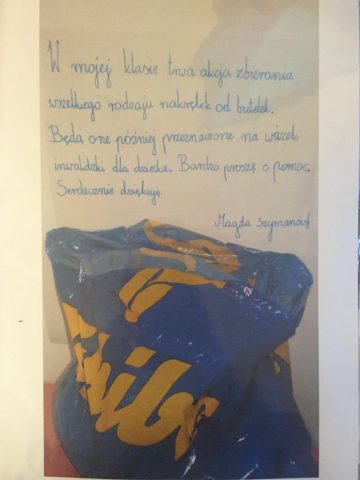 W mojej klasie trwa akcja zbierania
wszelkiego rodzaju nakrętek od butelek.
Będą one później przeznaczone na wózek
inwalidzki dla dziecka. Bardzo proszę o pomoc.
Serdecznie dziękuję.
Magda